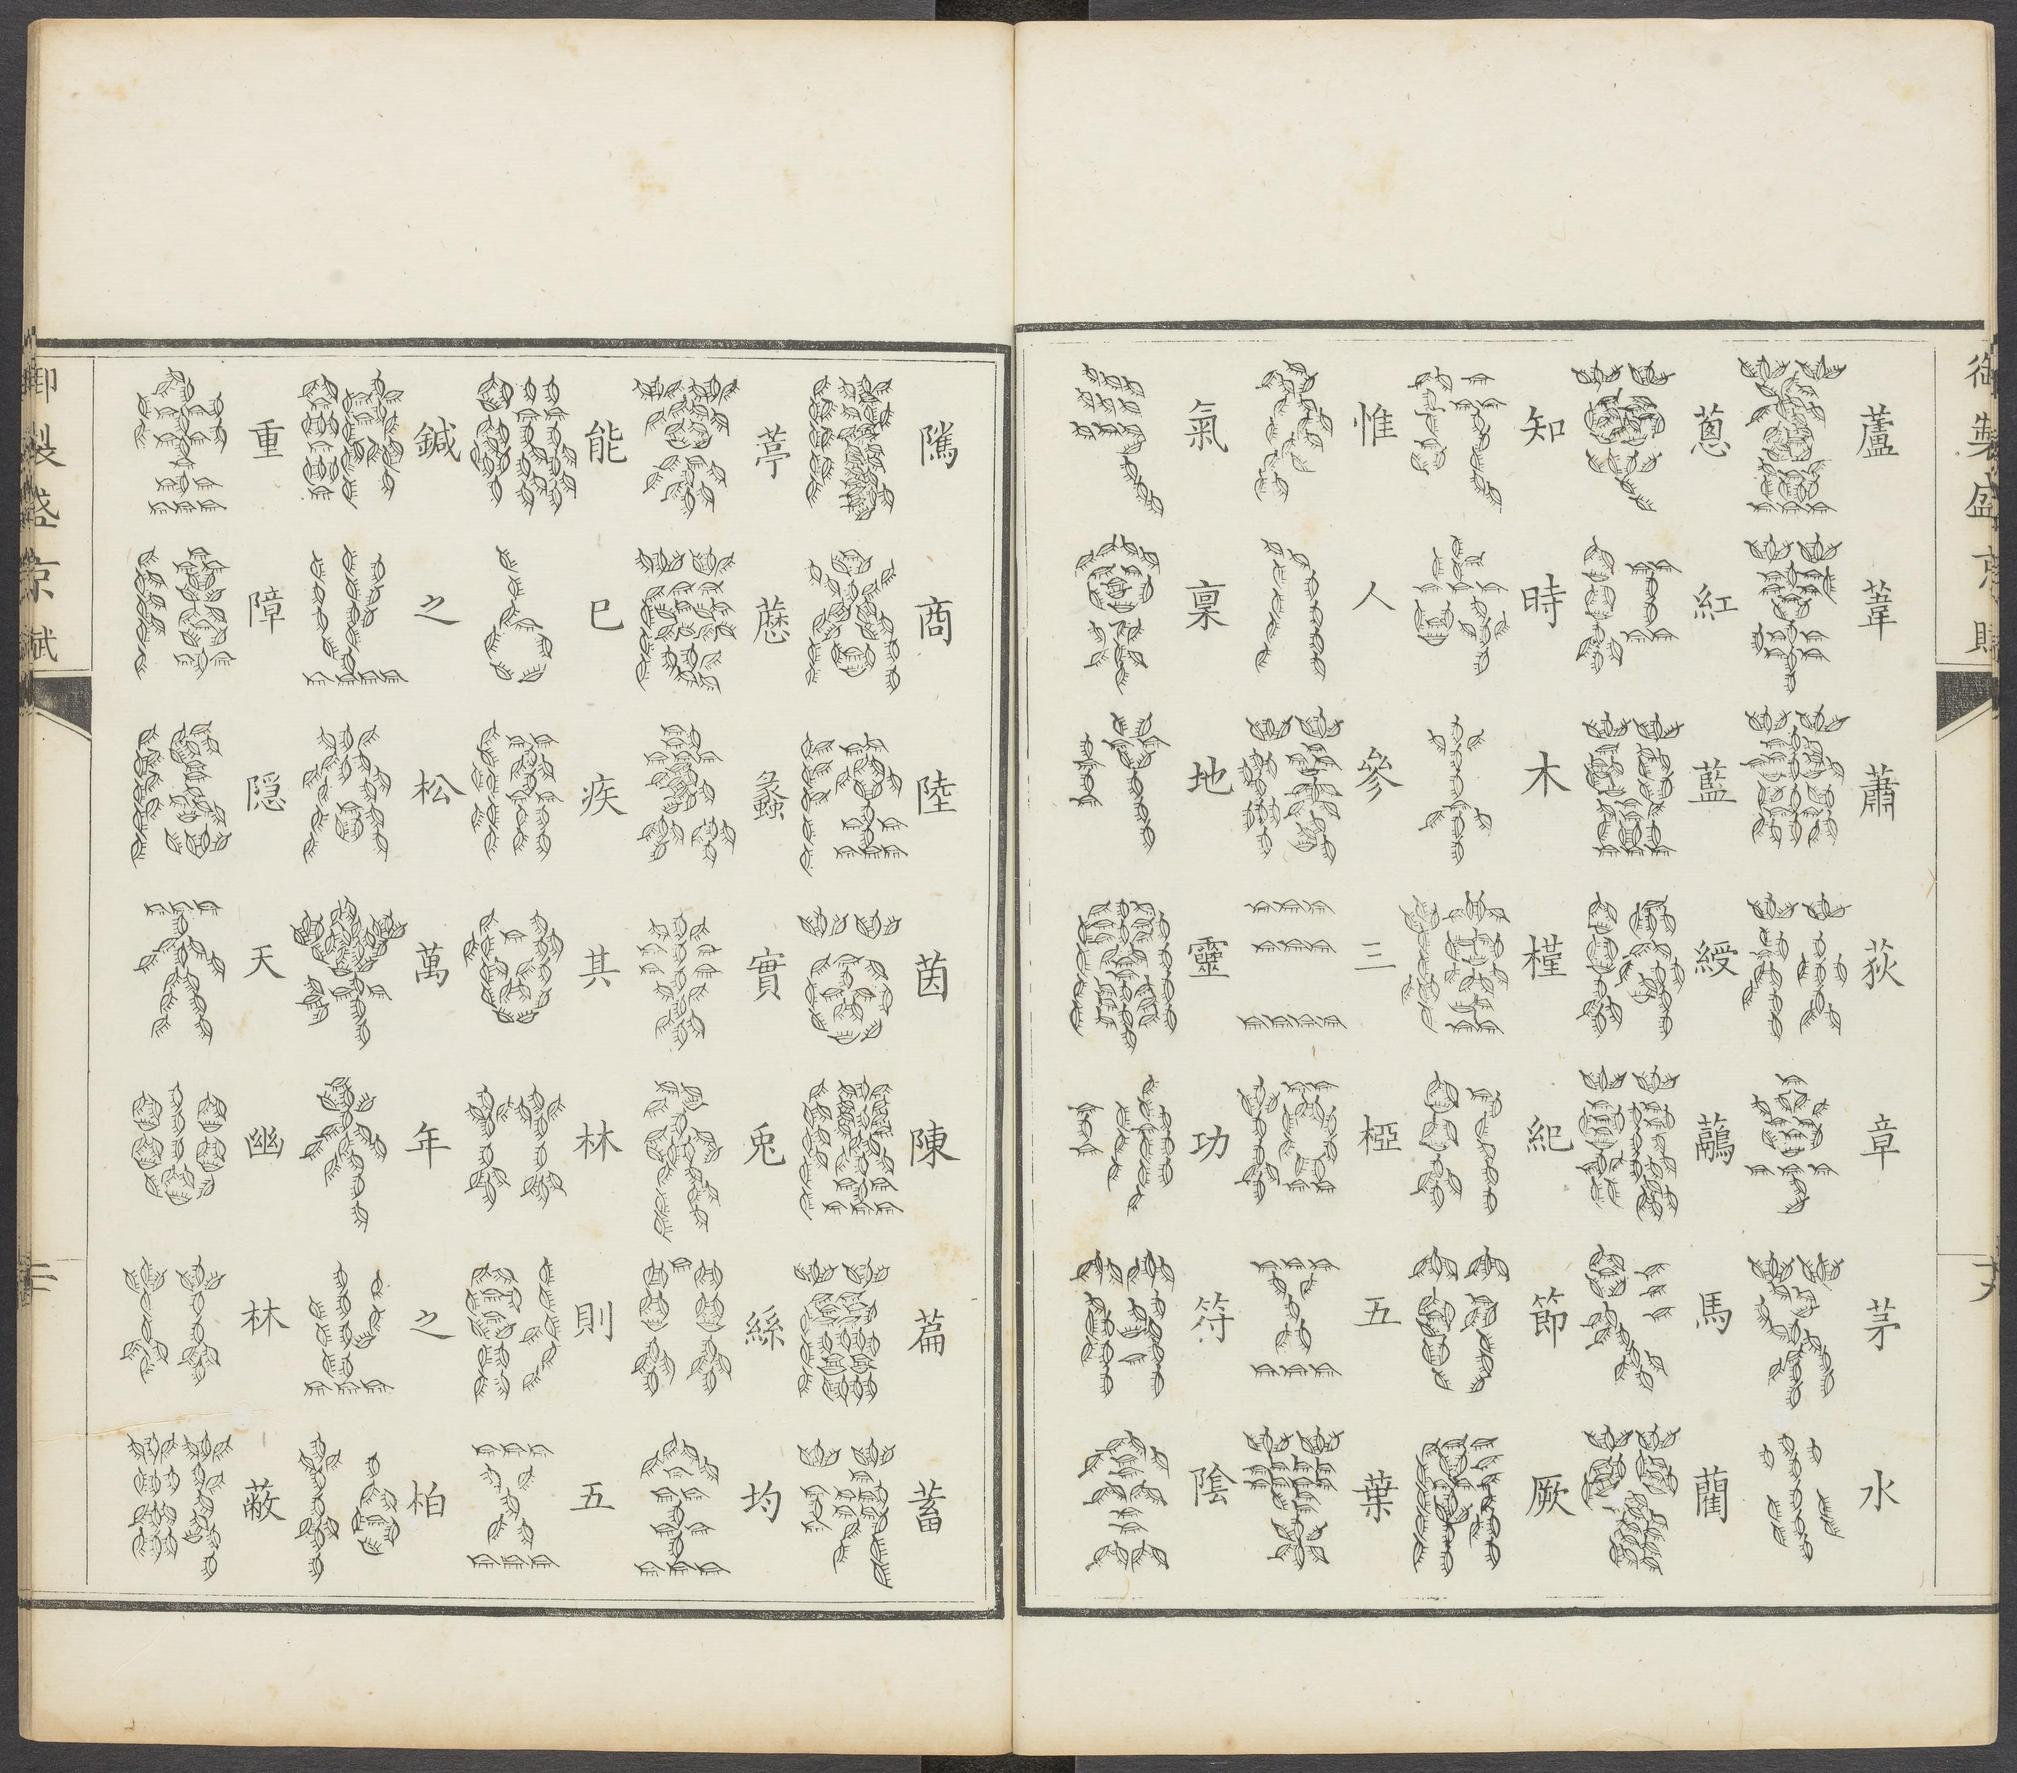 御製盛京賦
蘆葦蕭荻章茅水
蔥紅藍綬虉馬藺
知時木槿紀節厥
惟人參三椏五葉
氣稟地靈功符陰
隲商陸茵陳萹蓄
葶藶蠡實兎絲均
能已疾其林則五
鍼之松萬年之柏
重障隠天幽林蔽
御製盛京賦